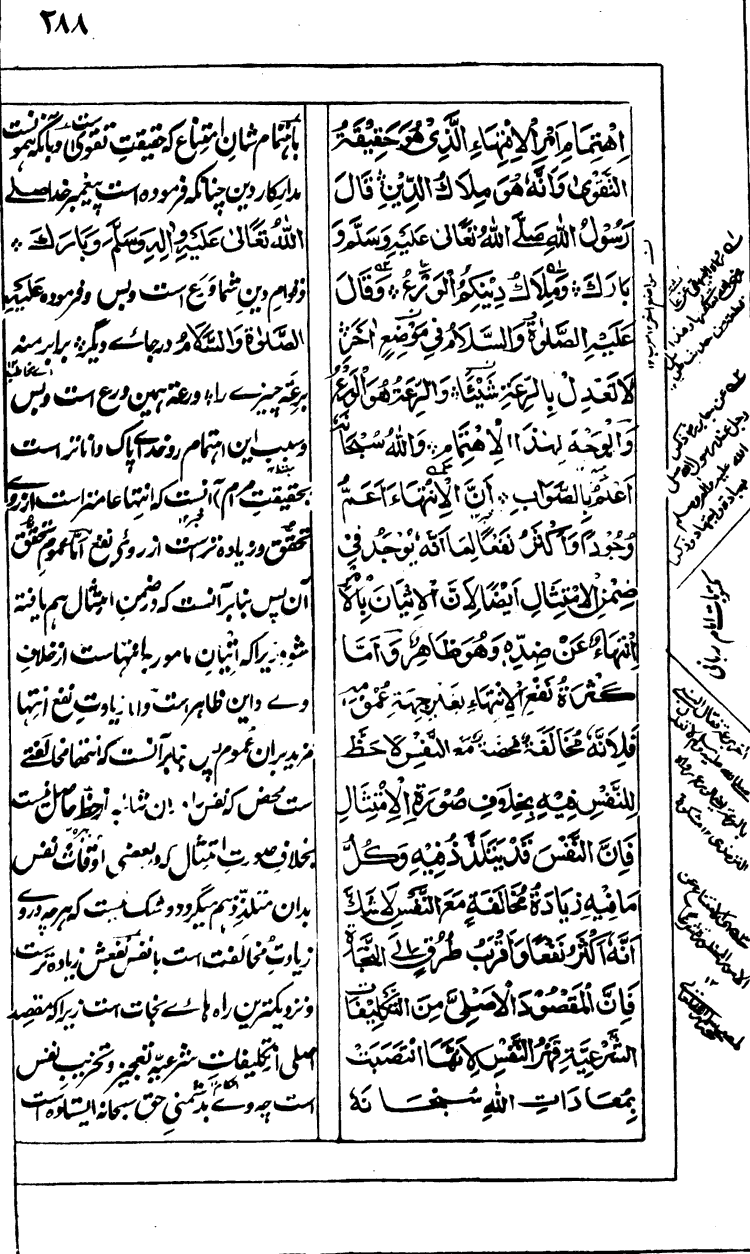 ٢٨٨
اِهْتِمَامِ اَمْرِ الْاِنْتِهَاءِ الَّذِیْ هُوَ حَقِیْقَةُ
التَّقْوٰی وَاَنَّهٗ هُوَ مِلَاكُ الدِّیْنِ قَالَ
رَسُوْلُ اللّٰهِ صَلَّی اللّٰهُ تَعَالٰی عَلَیْهِ وَسَلَّمَ وَ
بَارَكَ وَمِلَاكُ دِیْنِكُمُ الْوَرَعُ وَقَالَ
عَلَیْهِ الصَّلٰوةُ وَالسَّلَامُ فِیْ مَوْضِعٍ اٰخَرَ
لَا تَعْدِلْ بِالرِّعَةِ شَیْئًا وَالرِّعَةُ هُوَ الْوَرَعُ
وَالْوَجْهُ لِهٰذَا الْاِهْتِمَامِ وَاللّٰهُ سُبْحَانَهٗ
اَعْلَمُ بِالصَّوَابِ اَنَّ الْاِنْتِهَاءَ اَعَمُّ
وُجُوْدًا وَاَكْثَرُ نَفْعًا لِمَا اَنَّهٗ یُوْجَدُ فِیْ
ضِمْنِ الْاِمْتِثَالِ اَیْضًا لِاَنَّ الْاِتْیَانَ بِالْاَ
اِنْتِهَاءٌ عَنْ ضِدِّهٖ وَهُوَ ظَاهِرٌ وَاَمَّا
كَثْرَةُ نَفْعِ الْاِنْتِهَاءِ بِغَیْرِ جِهَةِ عُمُوْمِهٖ
فَلِاَنَّهٗ مُخَالَفَةٌ مَحْضَةٌ مَعَ النَّفْسِ لَا حَظَّ
لِلنَّفْسِ فِیْهِ بِخِلَافِ صُوْرَةِ الْاِمْتِثَالِ
فَاِنَّ النَّفْسَ قَدْ یَتَلَذَّذُ فِیْهِ وَكُلُّ
مَا فِیْهِ زِیَادَةُ مُخَالَفَةٍ مَعَ النَّفْسِ لَا شَكَّ
اَنَّهٗ اَكْثَرُ نَفْعًا وَاَقْرَبُ طُرُقٍ اِلَی النَّجَاةِ
فَاِنَّ الْمَقْصُوْدَ الْاَصْلِیَّ مِنَ التَّكْلِیْفَاتِ
الشَّرْعِیَّةِ قَهْرُ النَّفْسِ لِاَنَّهَا انْتَصَبَتْ
بِمُعَادَاتِ اللّٰهِ سُبْحَانَهٗ
باهتمام شان امتناع که حقیقت تقوی است وبآنکه همونست
مدار کار دین چنانکه فرموده است پیغمبر خدا صلی
اللّٰهُ تَعَالٰی عَلَیْهِ وَاٰلِهٖ وَسَلَّمَ وَبَارَكَ
وقوام دین شما ورع است وبس وفرموده عَلَیْهِ
الصَّلٰوةُ وَالسَّلَامُ در جائے دیگر برابر منه
برعة چیزے را ورعة همین ورع است وبس
وسبب این اهتمام وخدائے پاک داناتر است
بحقیقت مرام آنست که انتها عامتر است از روے
تحقق وزیاده تر است از روے نفع اما عموم تحقق
آن پس بنابر آنست که در ضمن امتثال هم یافته
شود زیرا که اتیان مامور به انتهاست از خلاف
وے واین ظاهر است واما زیادت نفع انتها
مزید بران عموم پس بنابر آنست که انتها مخالفتے
ست محض که نفس را دران شائبه از حظ حاصل نیست
بخلاف صورت امتثال که در بعضی اوقات نفس
بدان متلذذ هم میگردد وشک نیست که هر چه در وے
زیادت مخالفت است با نفس نفعش زیاده تر است
ونزدیکترین راه هائے نجات است زیرا که مقصد
اصلی از تکلیفات شرعیه تعجیز وتخریب نفس
است چه وے بدشمنی حق سبحانه ایستاده است
مکتوبات امام ربانی